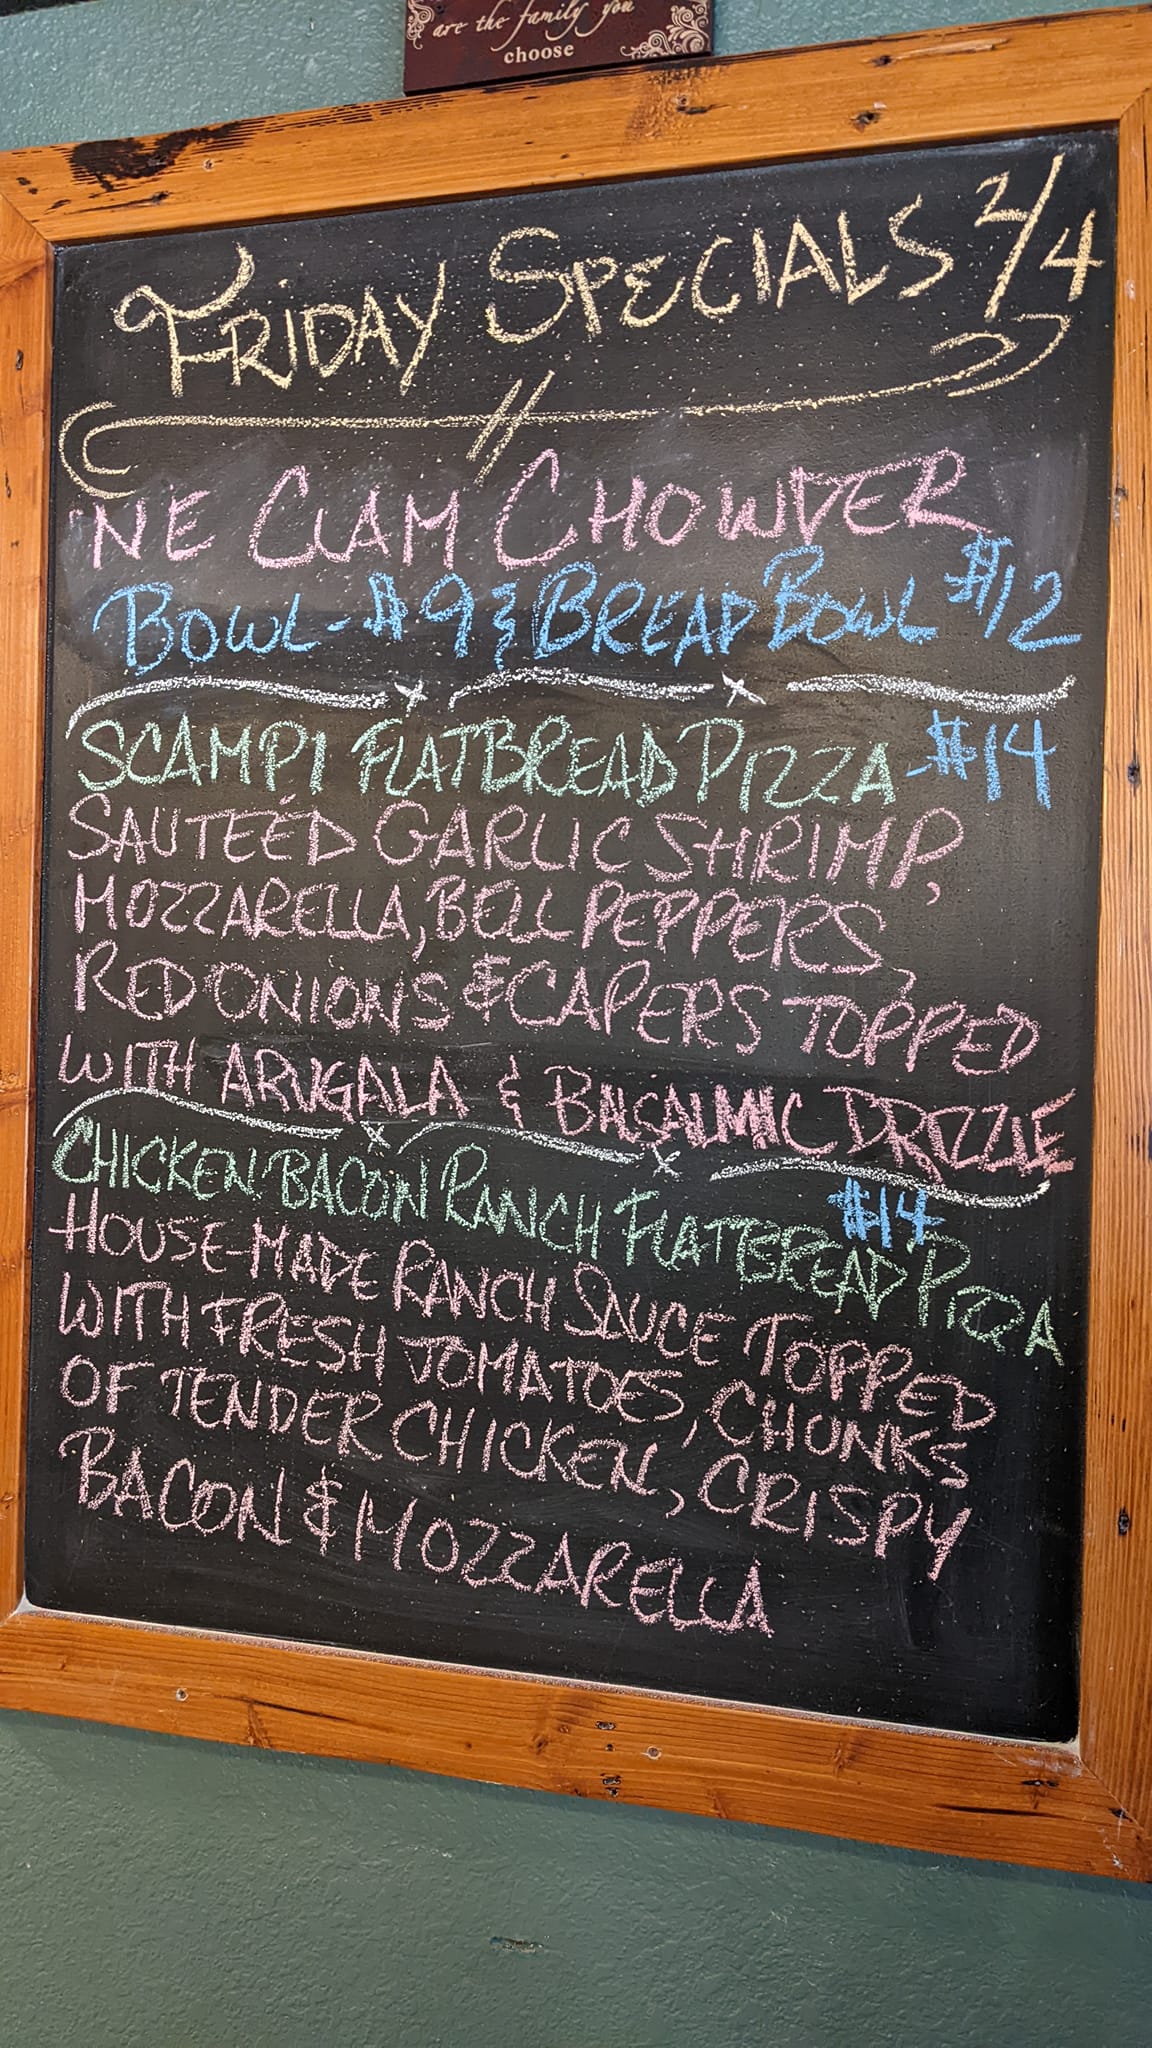 are the family you
choose
FRIDAY SPECIALS 2/4
NE CLAM CHOWDER
BOWL-$9 & BREAD BOWL $12
SCAMPI FLATBREAD PIZZA -$14
SAUTEÉD GARLIC SHRIMP,
MOZZARELLA, BELL PEPPERS,
RED ONIONS & CAPERS TOPPED
WITH ARUGALA & BALSALMIC DRIZZLE
CHICKEN BACON RANCH FLATBREAD PIZZA
$14
HOUSE-MADE RANCH SAUCE TOPPED
WITH FRESH TOMATOES, CHUNKS
OF TENDER CHICKEN, CRISPY
BACON & MOZZARELLA